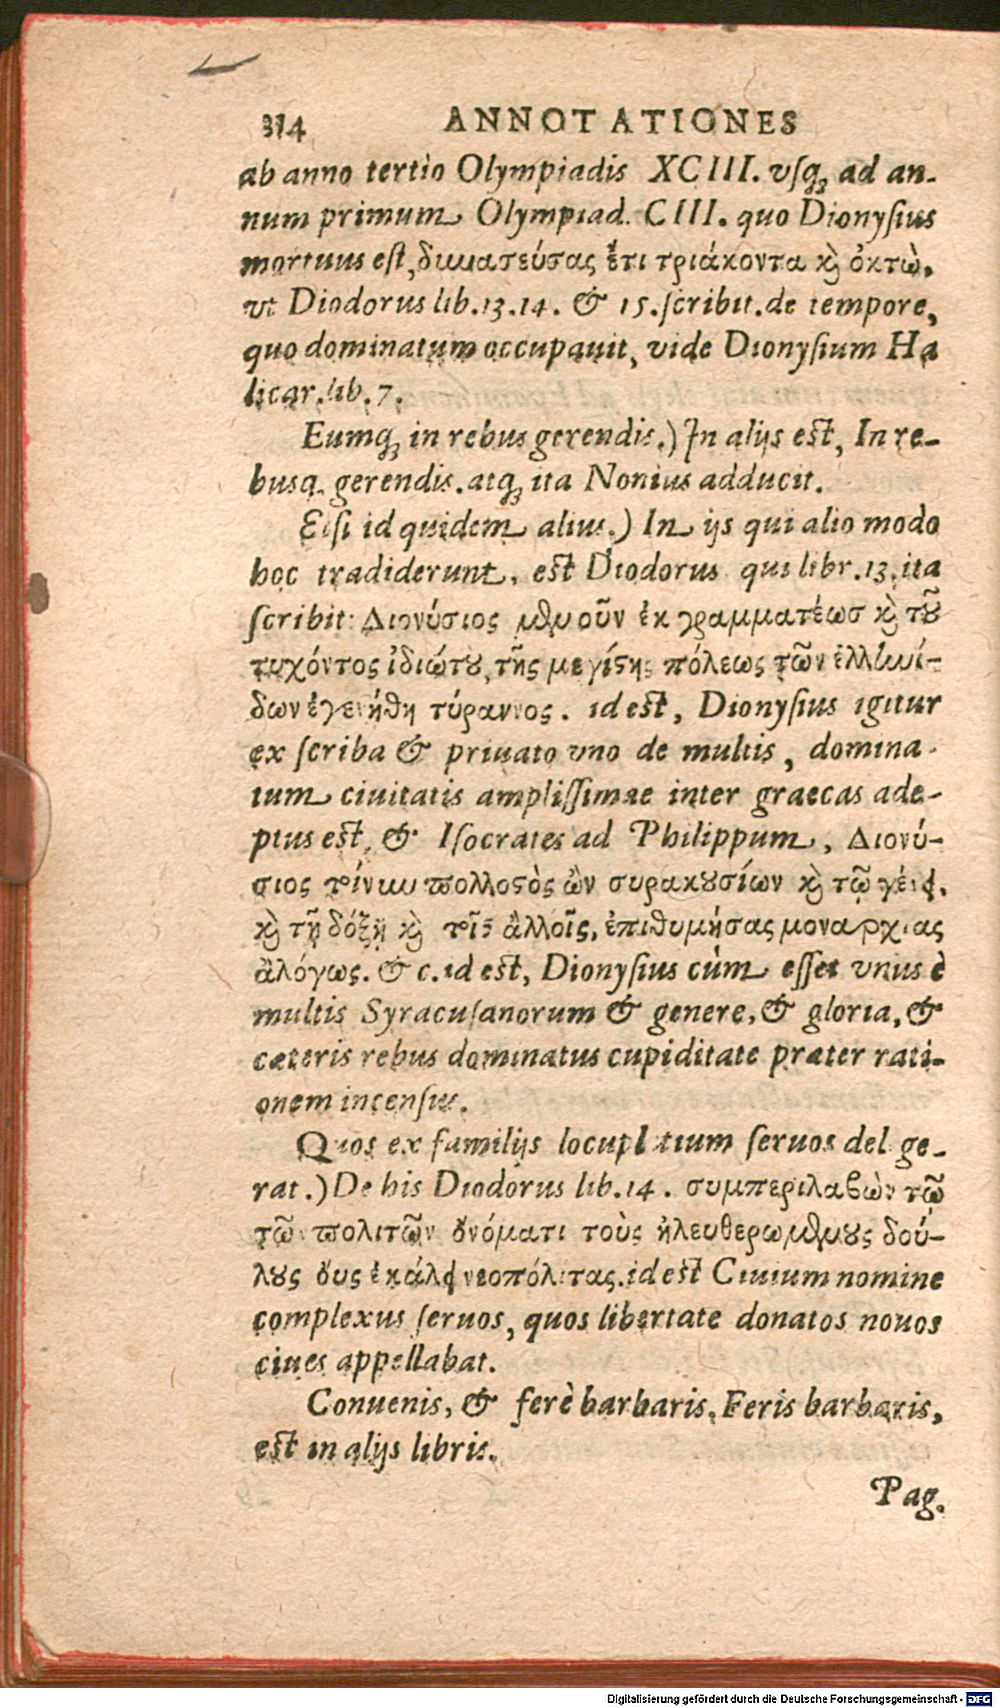 374 ANNOTATIONES
ab anno tertio Olympiadis XCIII. vsq; ad an-
num primum Olympiad. CIII. quo Dionysius
mortuus est, δυναστεύσας ἔτι τριάκοντα καὶ ὀκτὼ,
vt Diodorus lib.13.14. & 15. scribit. de tempore,
quo dominatum occupauit, vide Dionysium Ha
licar. lib. 7.
Eumq; in rebus gerendis.) In alijs est, In re-
busq. gerendis. atq; ita Nonius adducit.
Etsi id quidem alius.) In ijs qui alio modo
hoc tradiderunt, est Diodorus qui libr.13. ita
scribit: Διονύσιος μὲν οὖν ἐκ γραμματέωσ καὶ τοῦ
τυχόντος ἰδιώτου, τῆς μεγίστης πόλεως τῶν ἑλληνί-
δων ἐγενήθη τύραννος. id est, Dionysius igitur
ex scriba & priuato vno de multis, domina-
tum ciuitatis amplissimae inter graecas ade-
ptus est, & Isocrates ad Philippum, Διονύ-
σιος πολλοστὸς ὢν συρακουσίων καὶ τῷ γένει,
καὶ τῇ δόξῃ καὶ τοῖς ἄλλοις, ἐπιθυμήσας μοναρχιας
ἀλόγως. & c. id est, Dionysius cùm esset vnus è
multis Syracusanorum & genere, & gloria, &
caeteris rebus dominatus cupiditate praeter rati-
onem incensus.
Quos ex familijs locupletium seruos delege-
rat.) De his Diodorus lib. 14. συμπεριλαβὼν τῷ
τῶν πολιτῶν ὀνόματι τοὺς ἠλευθερωμένους δού-
λους οὓς ἐκάλει νεοπόλιτας. id est Ciuium nomine
complexus seruos, quos libertate donatos nouos
ciues appellabat.
Conuenis, & ferè barbaris. Feris barbaris,
est in alijs libris.
Pag.
Digitalisierung gefördert durch die Deutsche Forschungsgemeinschaft - DFG